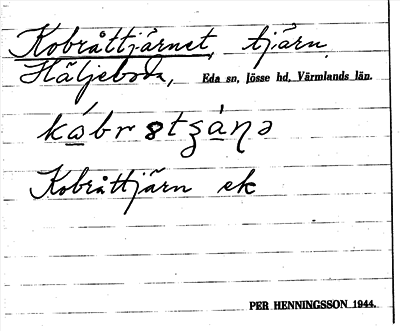 Kobråttjärnet, tjärn
Häljeboda, Eda sn, Jösse hd, Värmlands län.
Kobråttjärn ek
PER HENNINGSSON 1944.